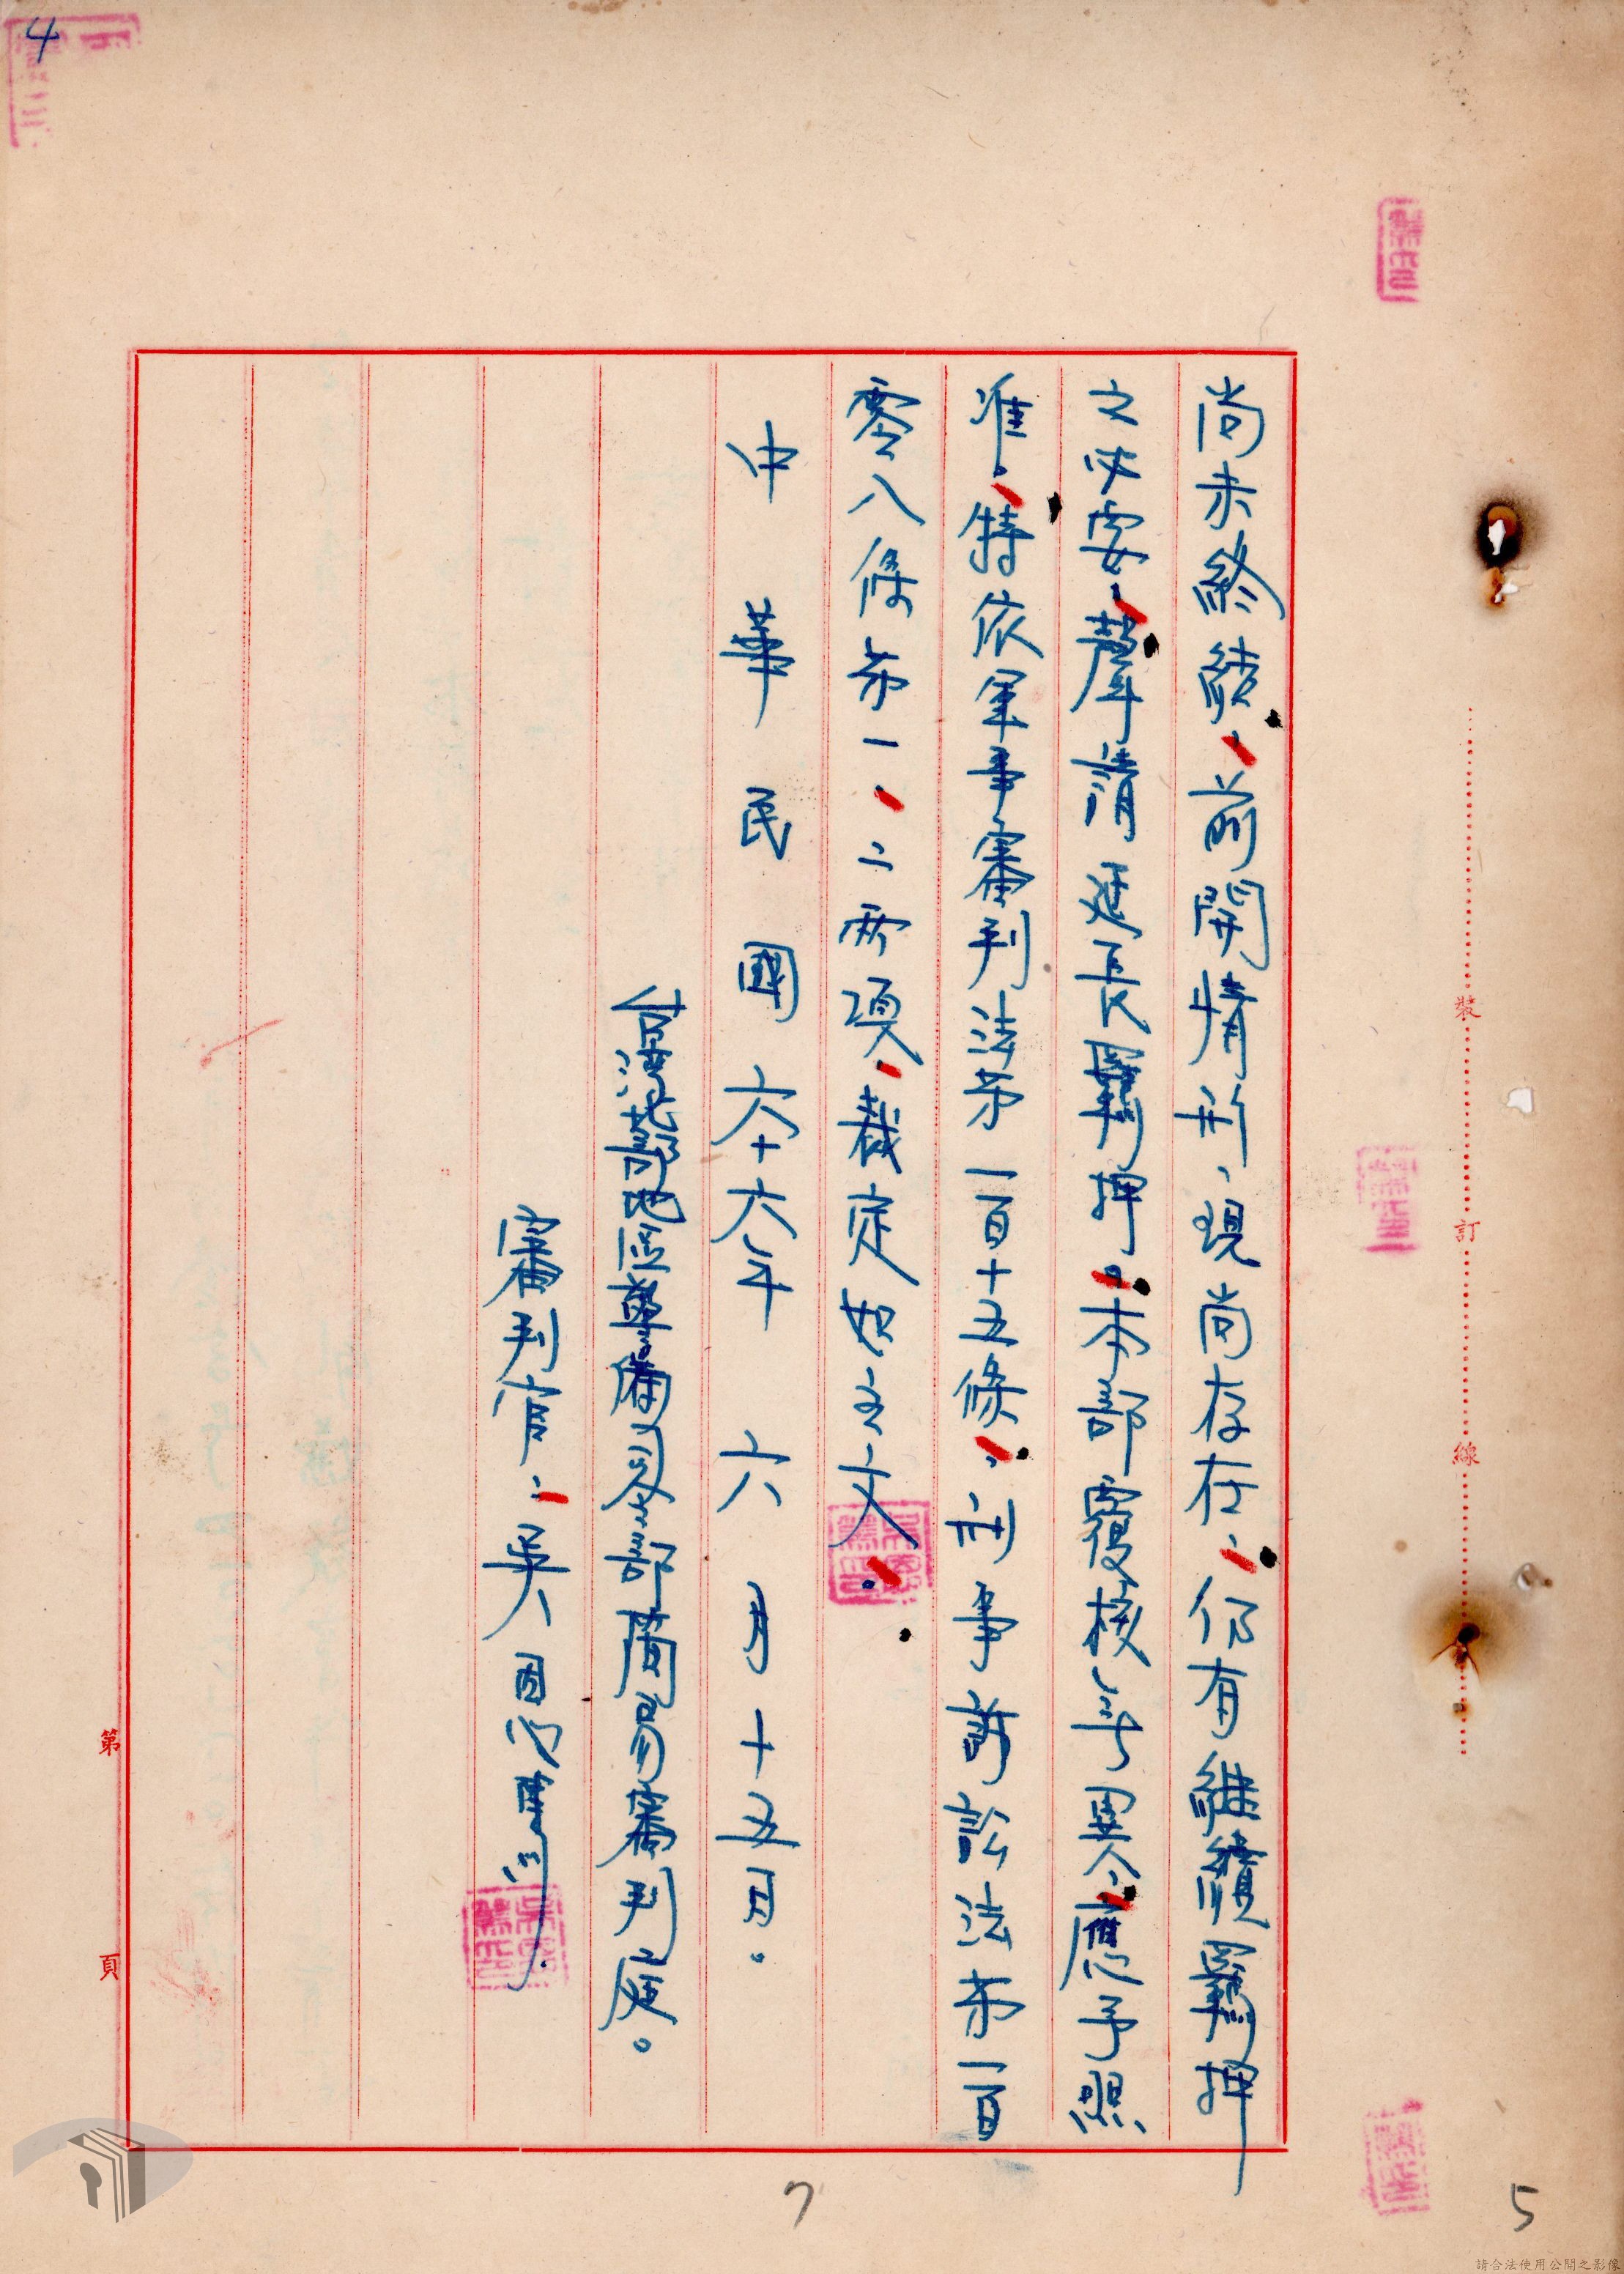 尚未終結、前開情形、現尚存在、仍有繼續羈押
之必要、聲請延長羈押。本部覆核無異、應予照
准、特依軍事審判法第一百十五條、刑事訴訟法第一百
零八條第一、二兩項、裁定如主文。
中華民國六十六年六月十五日。
台灣北部地區警備司令部簡易審判庭。
審判官:吳恩
裝訂線
第頁
4
7
5
請合法使用公開之影像